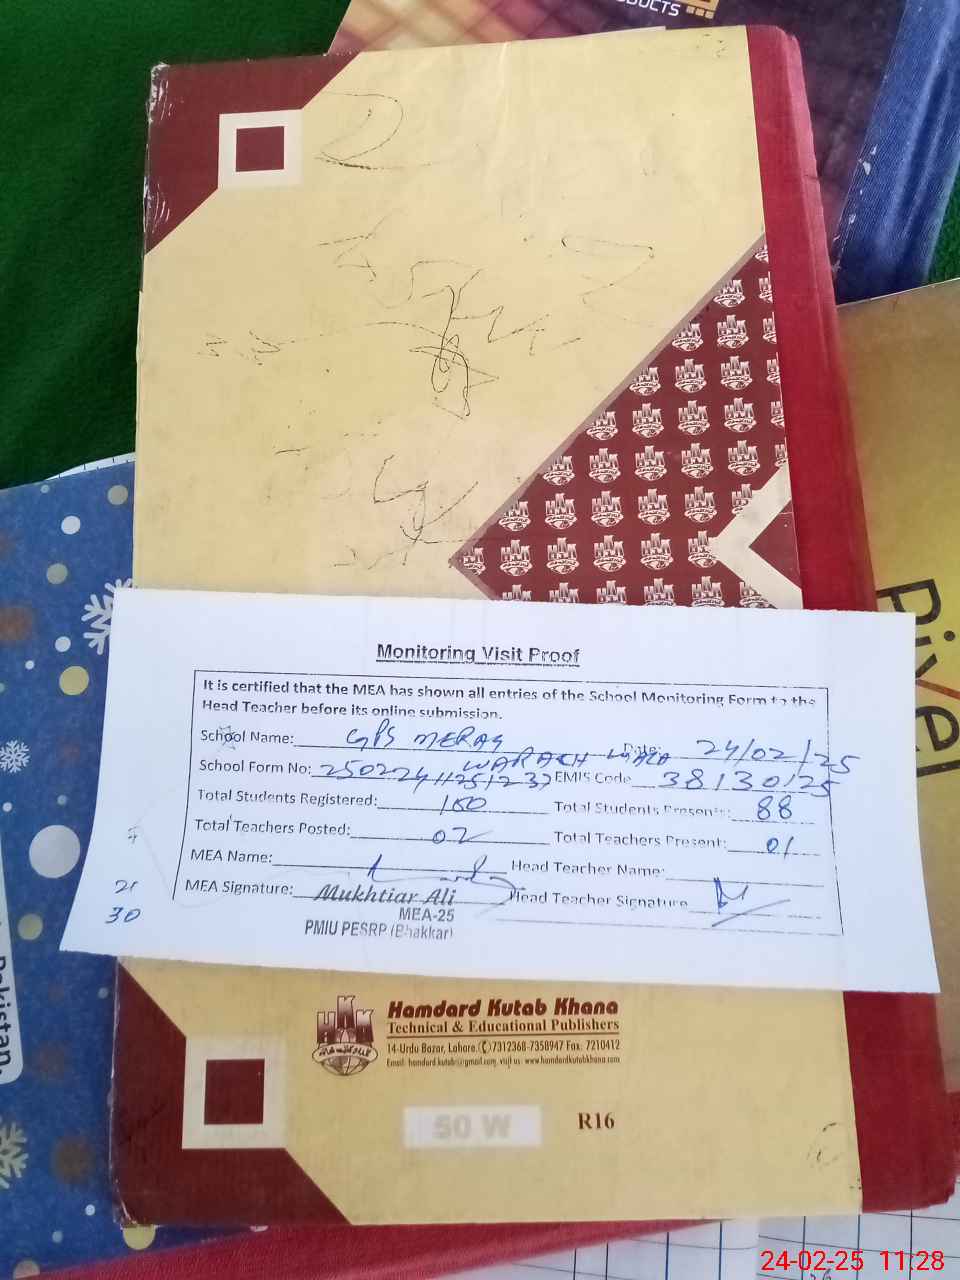 PRODUCTS
Monitoring Visit Proof
It is certified that the MEA has shown all entries of the School Monitoring Form to the
Head Teacher before its online submission.
School Name: GPS MERAG Date: 24/02/25
WARACH WALA
School Form No: EMIS Code 38130125
Total Students Registered: 100 Total Students Present: 88
Total Teachers Posted: 02 Total Teachers Present: 01
MEA Name: Head Teacher Name:
MEA Signature: Mukhtiar Ali Head Teacher Signature
MEA-25
PMIU PESRP (Bhakkar)
21
30
Pakistan
Pixel
HKK
Hamdard Kutab Khana
Technical & Educational Publishers
14-Urdu Bazar, Lahore. 7312368-7358947 Fax: 7210412
Email: hamdard.kutab@gmail.com, visit us: www.hamdardkutabkhana.com
50 W R16
24-02-25 11:28